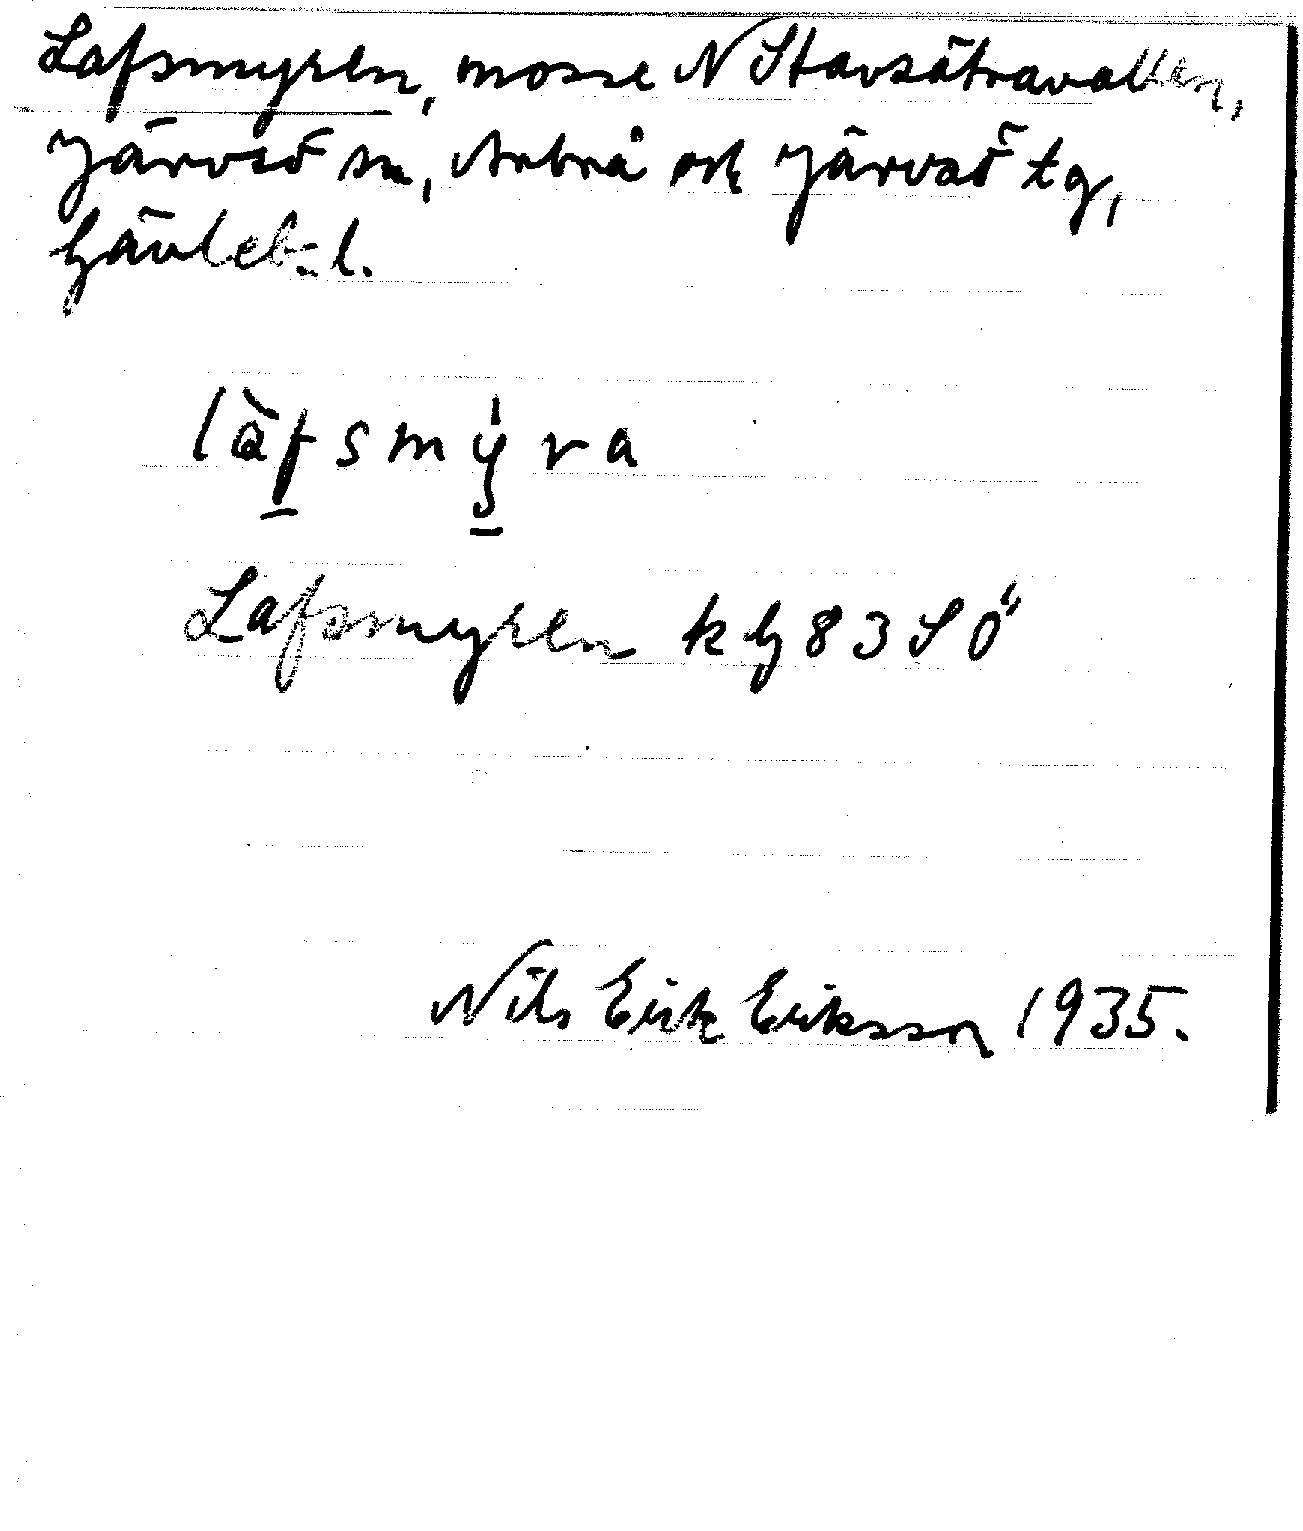 Lafsmyren, mosse N Stavsätravallen,
Järvsö sn, Arbrå och Järvsö tg,
Gävleb. l.
làfsmýra
Lafsmyren k G 83 SÖ
Nils Erik Eriksson 1935.